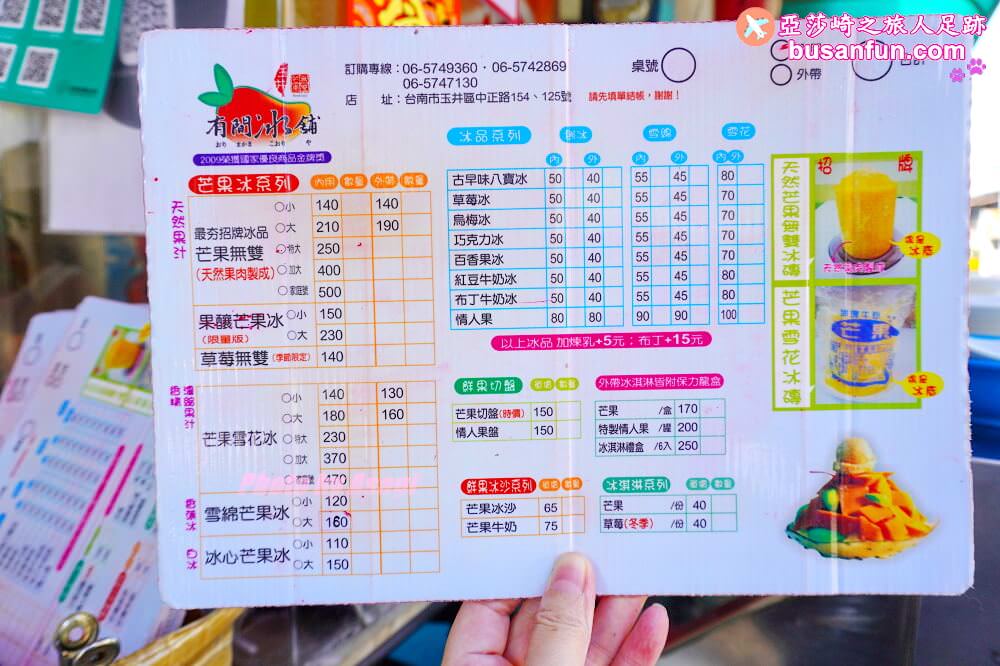 亞莎崎之旅人足跡
busanfun.com
訂購專線：06-5749360．06-5742869
06-5747130
店　　址：台南市玉井區中正路154、125號
請先填單結帳，謝謝！
桌號
外帶
有間冰舖
おり まかき こおり や
2009榮獲國家優良商品金牌獎
芒果冰系列 內用 數量 外帶 數量
天然果汁
最夯招牌冰品
芒果無雙
(天然果肉製成)
小 140 140
大 210 190
特大 250
加大 400
家庭號 500
果釀芒果冰
(限量版)
小 150
大 230
草莓無雙 (季節限定) 140
芒果雪花冰
小 140 130
大 180 160
特大 230
加大 370
家庭號 470
雪綿芒果冰
小 120
大 160
白冰
冰心芒果冰
小 110
大 150
冰品系列 刨冰 雪綿 雪花
內 外 內 外 內 外
古早味八寶冰 50 40 55 45 80
草莓冰 50 40 55 45 70
烏梅冰 50 40 55 45 70
巧克力冰 50 40 55 45 70
百香果冰 50 40 55 45 70
紅豆牛奶冰 50 40 55 45 80
布丁牛奶冰 50 40 55 45 80
情人果 80 80 90 90 100
以上冰品 加煉乳+5元；布丁+15元
鮮果切盤 單價 數量
芒果切盤(時價) 150
情人果盤 150
外帶冰淇淋皆附保力龍盒
芒果 /盒 170
特製情人果 /罐 200
冰淇淋禮盒 /6入 250
鮮果冰沙系列 單價 數量
芒果冰沙 65
芒果牛奶 75
冰淇淋系列 單價 數量
芒果 /份 40
草莓(冬季) /份 40
招牌
天然芒果無雙冰磚
芒果雪花冰磚
芒果